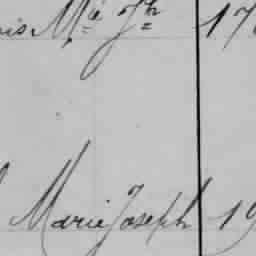 Mie Jh 17
Marie Joseph 19